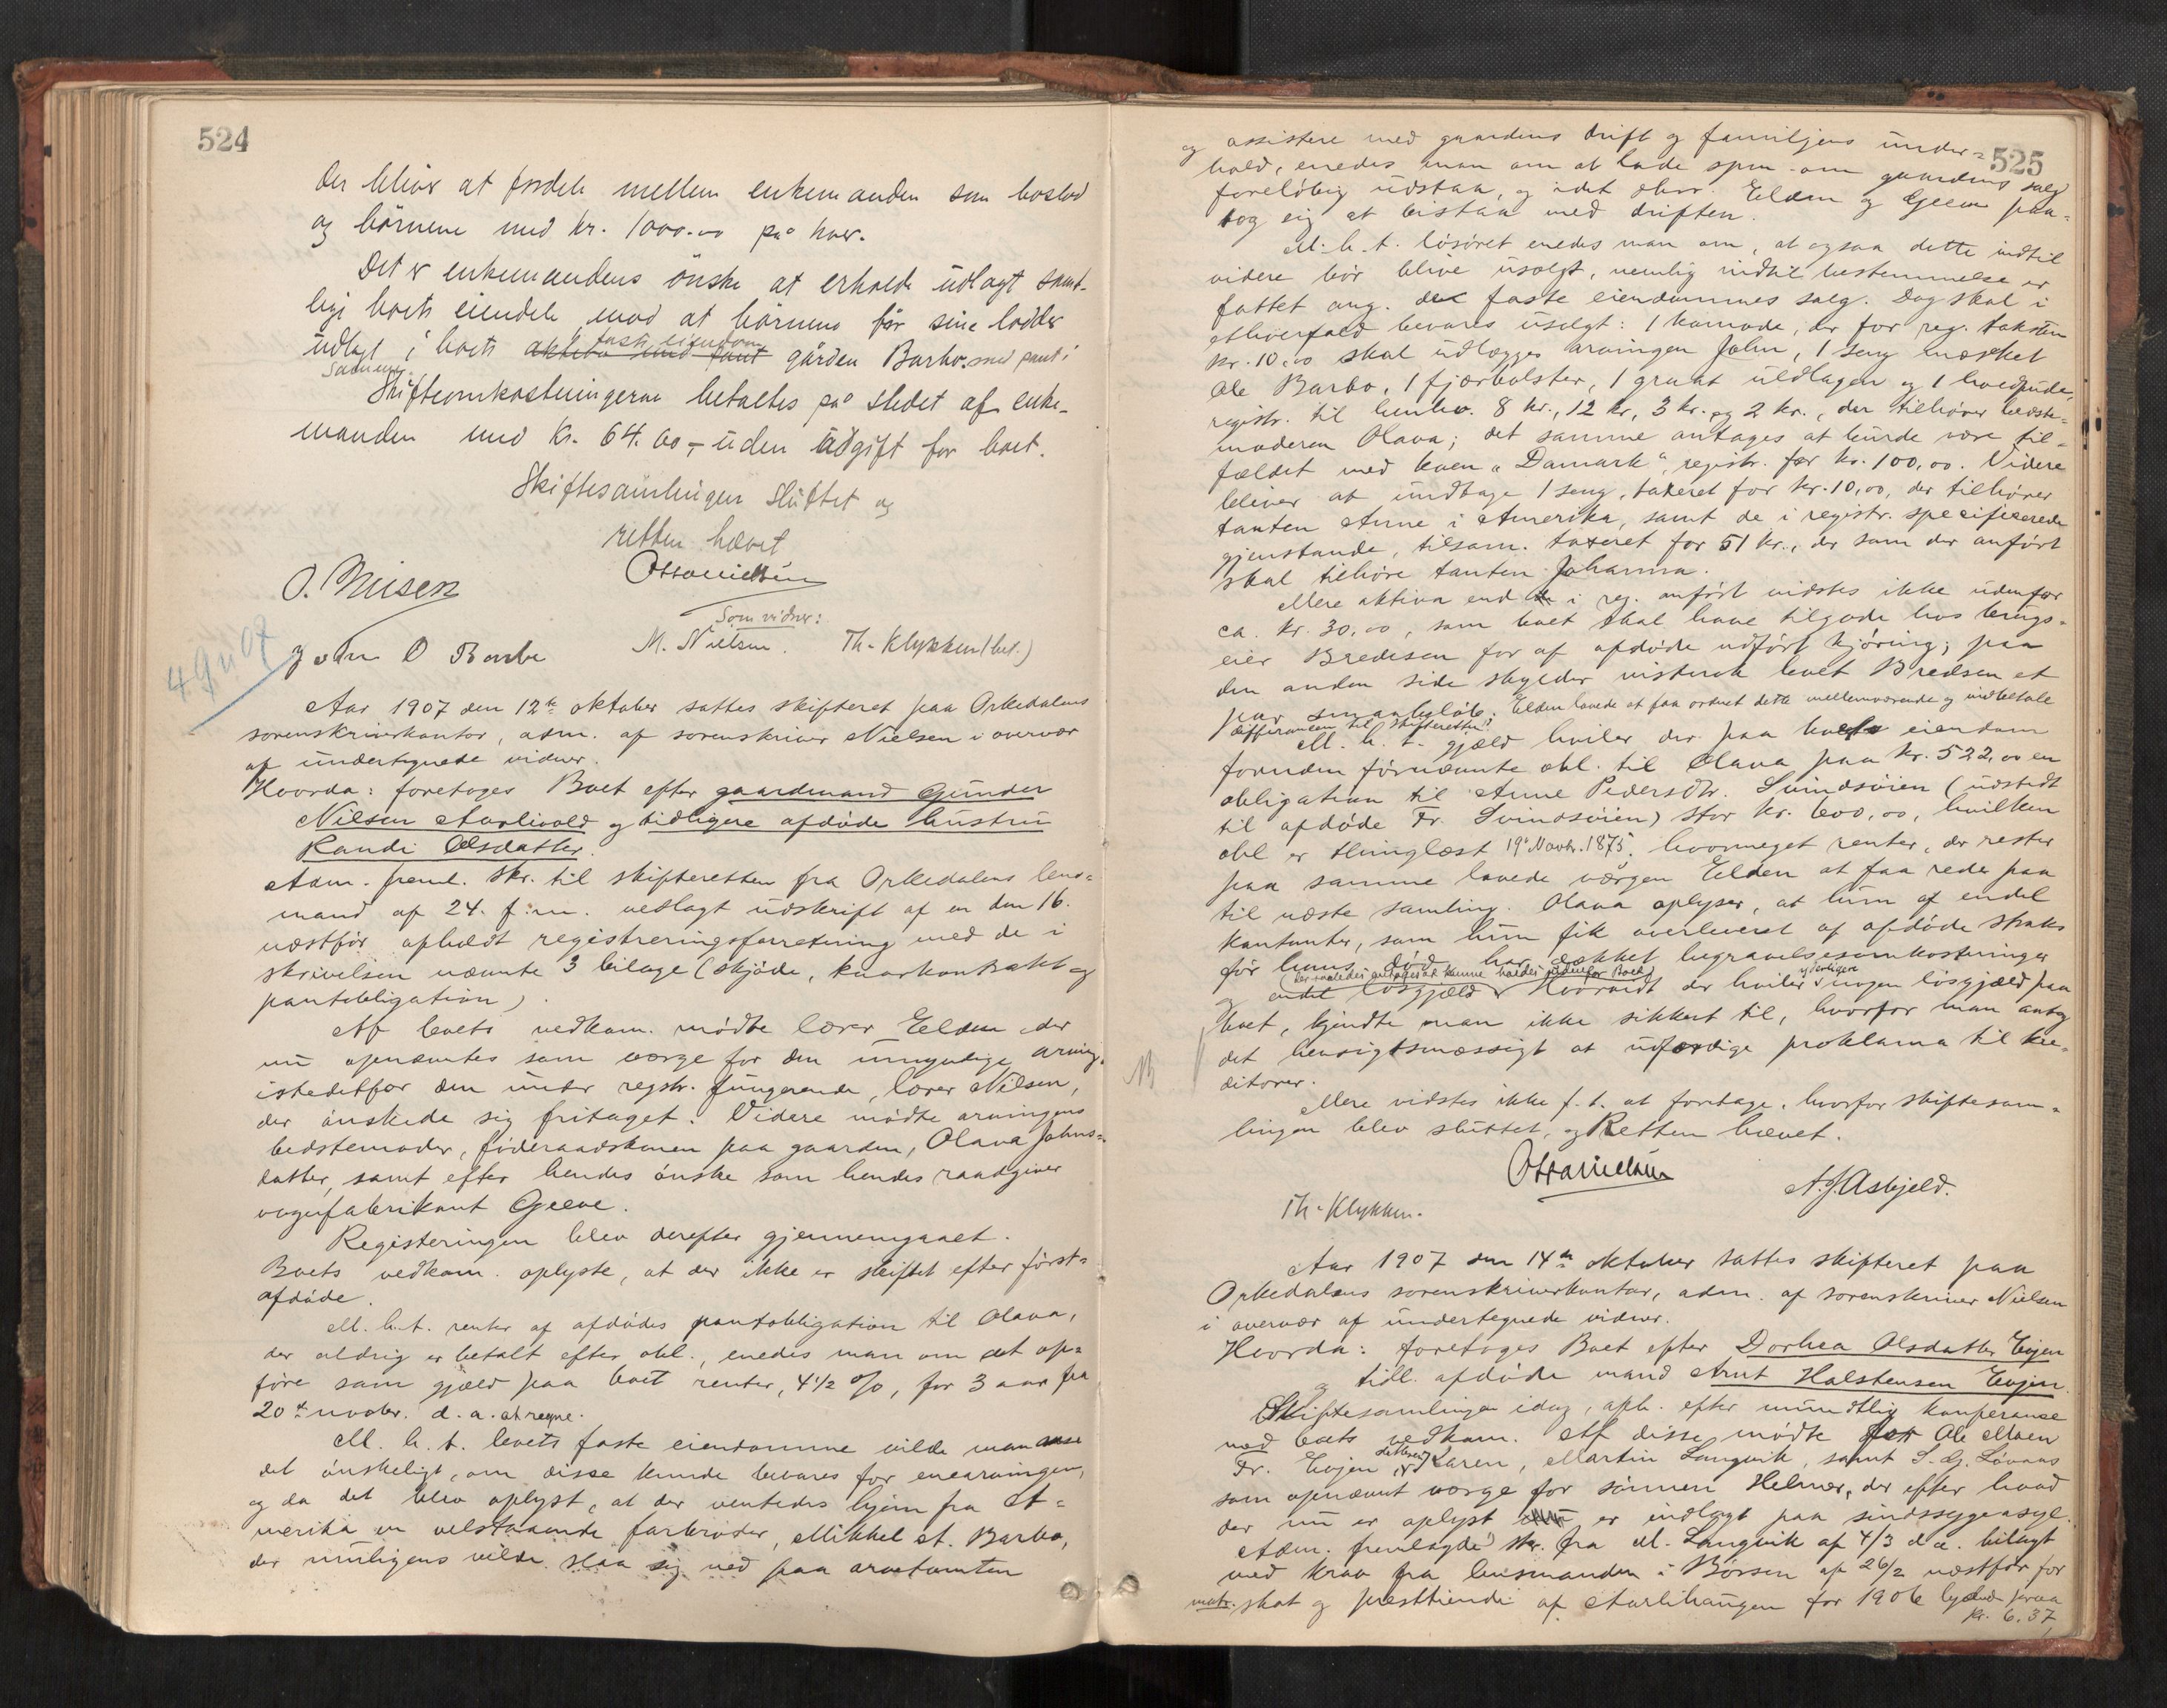 524
der bliver at fordele mellem enkemanden som boslod
og börnene med kr. 1000.00 på hver.
Det er enkemandens önske at erholde udlagt samt-
lige boets eiendele mod at börnene får sine lodder
udlagt i boets aktiva med pant fast eiendom gården Barbo. med pant i
samme.
Skifteomkostningerne betaltes på stedet af enke-
manden med kr. 64.00 - uden udgift for boet.
Skiftesamlingen sluttet og
retten hævet
Otto Nielsen
O. Nilsen
Som vidner:
John O Barbo
M. Nielsen. Th. Klykken (bet.)
49 u 07
Aar 1907 den 12te oktober sattes skifteret paa Orkedalens
sorenskriverkontor, adm. af sorenskriver Nielsen i overvær
af undertegnede vidner.
Hvorda: foretoges Boet efter gaardmand Gunder
Nilsen Aarlivold og tidligere afdöde hustru
Randi Olsdatter.
Adm. freml. skr. til skifteretten fra Orkedalens lens=
mand af 24. f.m. vedlagt udskrift af en den 16.
næstför opholdt registreringsforretning med de i
skrivelsen nævnte 3 bilage (skjöde, kaarkontrakt og
pantobligation).
Af boets vedkom. mödte lærer Eldem der
nu opnævntes som værge for den umyndige arving.
istedetfor den under regstr. fungerende, lærer Nilsen,
der önskede sig fritaget. Videre mödte arvingens
bedstemoder, föderaadskonen paa gaarden, Olava Johns=
datter, samt efter hendes önske som hendes raadgiver
vognfabrikant Geeve.
Registeringen blev derefter gjennemgaaet.
Boets vedkom. oplyste, at der ikke er skiftet efter först=
afdöde.
M. h. t. renter af afdödes pantobligation til Olava,
der aldrig er betalt efter obl., enedes man om at op=
före som gjæld paa boet renter, 4 1/2 %, for 3 aar fra
20de novbr. d. a. at regne.
M. h. t. boets faste eiendomme vilde man anse
det önskeligt, om disse kunde bevares for enearvingen,
og da det blev oplyst, at der ventedes hjem fra A=
merika en velstaaende farbroder, Mikkel A. Barbo,
der muligens vilde slaa sig ned paa arvetomten
525
og assistere med gaardens drift og familjens under=
hold, enedes man om at lade spm. om gaardens salg
foreløbig udstaa, og idet Eldem og Geeve paa=
tog sig at bistaa med driften.
M. h. t. lösöret enedes man om, at ogsaa dette indtil
videre bör blive usolgt, nemlig indtil bestemmelse er
fattet ang. det faste eiendommes salg. Dog skal i
ethvertfald bevares usolgt: 1 komode, der for reg. taksten
kr. 10.00 skal udlægges arvingen John, 1 seng mærket
Ole Barbo, 1 fjærbolster, 1 graat uldlagen og 1 hovedpude,
registr. til henhv. 8 kr., 12 kr, 3 kr. og 2 kr., der tilhörer bedste=
moderen Olava; det samme antages at burde være til=
fældet med koen "Damark", registr. for kr. 100,00. Videre
bliver at undtage 1 seng, taxeret for kr. 10,00, der tilhörer
tanten Anne i Amerika, samt de i registr. specificerede
gjenstande, tilsam. taxeret for 51 kr., der som der anfört
skal tilhöre tanten Johanna.
Mere aktiva end de i reg. anfört vidstes ikke udenfor
ca. kr. 30,00, som boet skal have tilgode hos brugs=
eier Bredesen for af afdöde udfört kjöring; paa
den anden side skylder vistnok boet Bredesen et
par smaabelöb. Elden lovede at faa ordnet dette mellemværende og indbetale
differancen til skifteretten.
M. h. t. gjæld hviler der paa boets eiendom
foruden förnævnte obl. til Olava paa kr. 522,00 en
obligation til Anne Pedersdtr. Svindsöien (udstedt
til afdöde Fr. Svindsöien) stor kr. 600,00, hvilken
obl er thinglæst 19de Novbr. 1875. hvormeget renter, der rester
paa samme lovede værgen Elden at faa rede paa
til næste samling. Olava oplyser, at hun af endel
kontanter, som hun fik overleveret af afdöde straks
för hans död, har dækket begravelsesomkostninger
(der saaledes antages at kunne holdes udenfor Boet)
og endel lösgjæld. Hvorvidt der hviler yderligere nogen lösgjæld paa
boet, kjendte man ikke sikkert til, hvorfor man antog
det hensigtsmæssigt at udfærdige proklama til kre=
ditorer.
NB
Mere vidstes ikke f. t. at foretage, hvorfor skiftesam=
lingen blev sluttet, og Retten hævet.
Otto Nielsen
A. J. Asbjeld.
Th. Klykken.
Aar 1907 den 14de oktober sattes skifteret paa
Orkedalens sorenskriverkontor, adm. af sorenskriver Nielsen
i overvær af undertegnede vidner.
Hvorda: foretoges Boet efter Dorhea Olsdatter Evjen
og tidl. afdöde mand Arnt Halstensen Evjen.
Skiftesamlingen idag, aph. efter mundtlig konferanse
med boets vedkom. Af disse mödte for Ole Moen
Fr. Evjen Karen, Martin Langvik, samt S. G. Lövaas
som opnævnt værge for sönnen Helmer, der efter hvad
der nu er oplyst er indlagt paa sindssygeasyl.
Adm. fremlagde skr. fra M. Langvik af 4/3 d. a. bilagt
med krav fra lensmanden i Börsen af 26/2 næstför for
matr. skat og presttiende af Aarlihaugen for 1906 lydende paa
kr. 6.37,